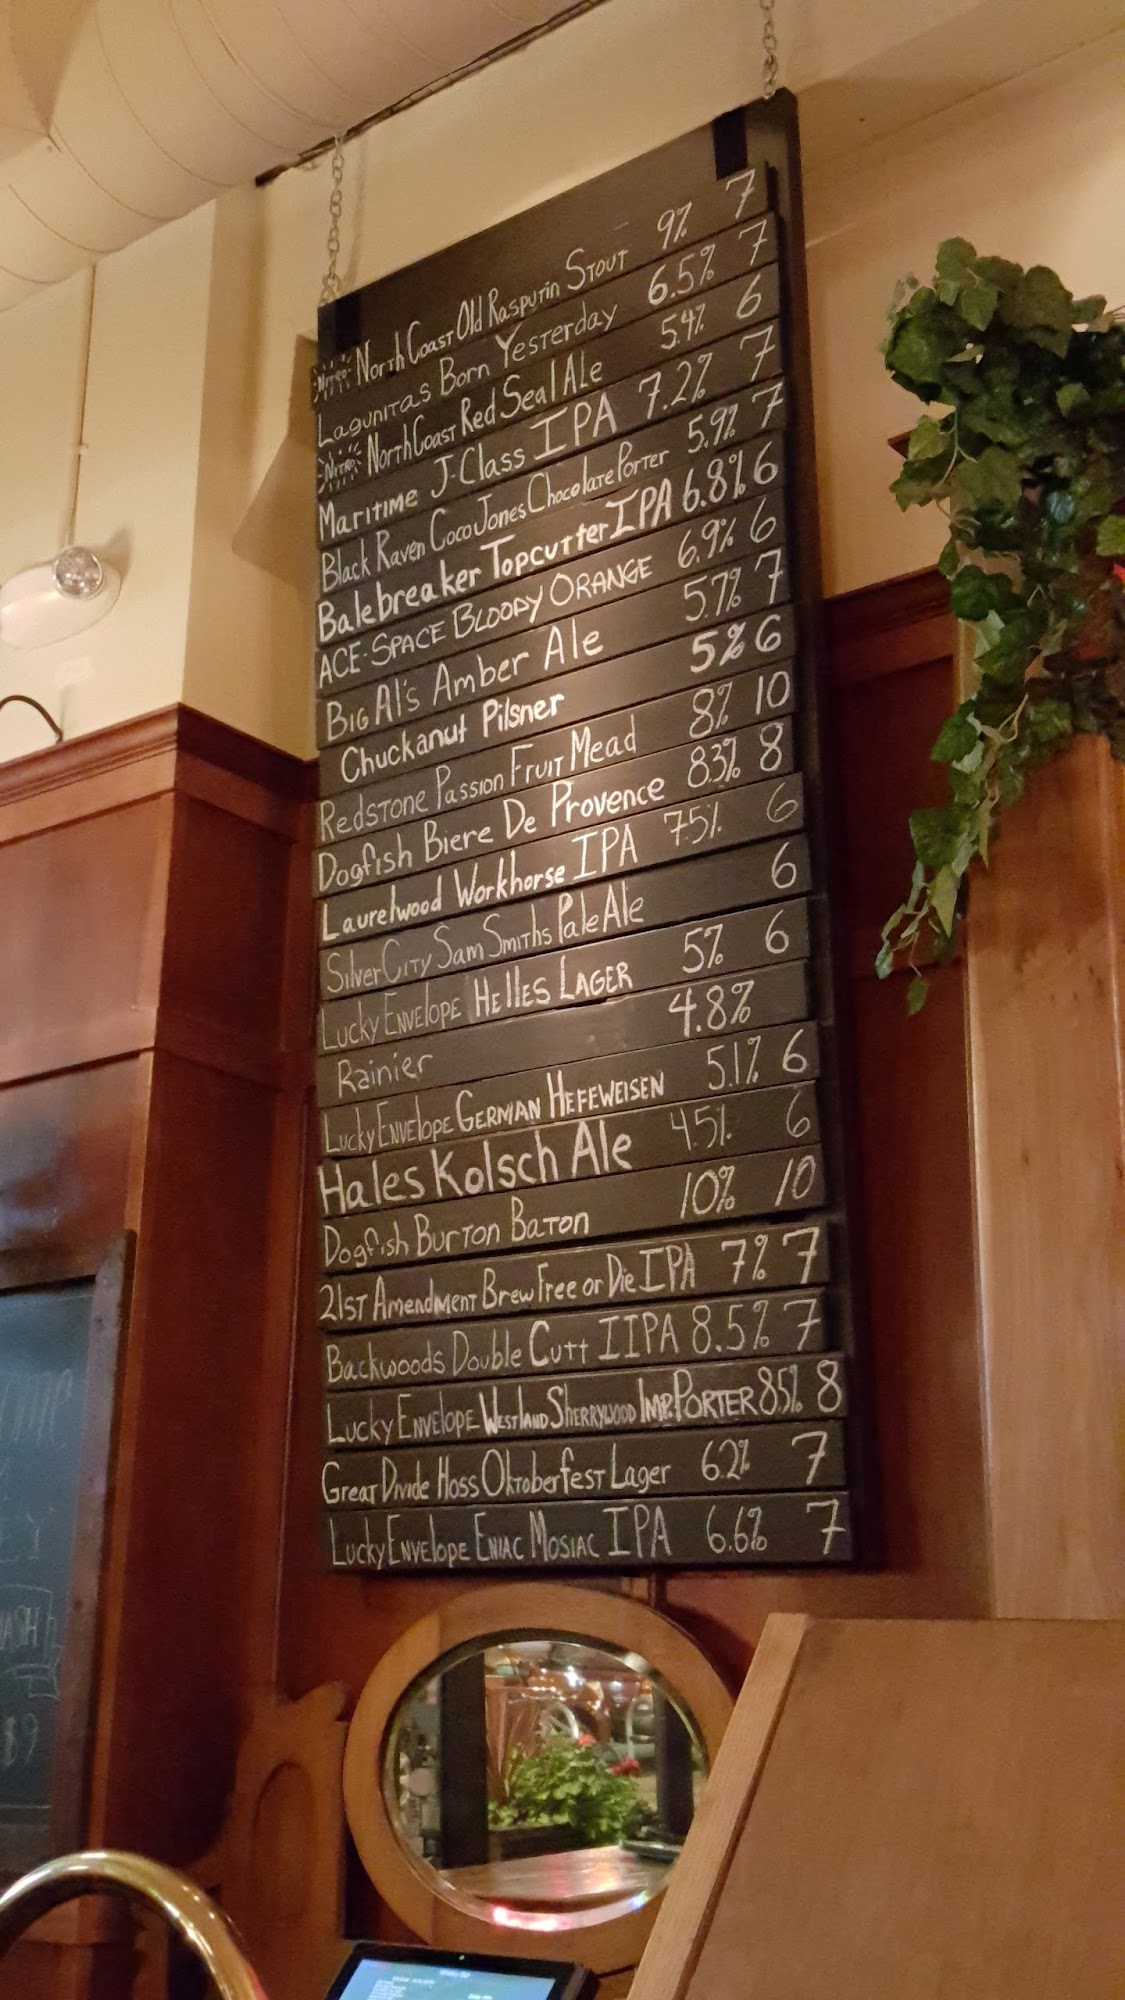 Nitro North Coast Old Rasputin Stout 9% 7
Lagunitas Born Yesterday 6.5% 7
Nitro North Coast Red Seal Ale 5.4% 6
Maritime J-Class IPA 7.2% 7
Black Raven Coco Jones Chocolate Porter 5.9% 7
Balebreaker Topcutter IPA 6.8% 6
ACE-SPACE BLOODY ORANGE 6.9% 6
Big Al's Amber Ale 5.7% 7
Chuckanut Pilsner 5% 6
Redstone Passion Fruit Mead 8% 10
Dogfish Biere De Provence 8.3% 8
Laurelwood Workhorse IPA 7.5% 6
Silver City Sam Smiths Pale Ale 6
Lucky Envelope Helles Lager 5% 6
Rainier 4.8%
Lucky Envelope German Hefeweisen 5.1% 6
Hales Kolsch Ale 4.5% 6
Dogfish Burton Baton 10% 10
21st Amendment Brew Free or Die IPA 7% 7
Backwoods Double Cutt IIPA 8.5% 7
Lucky Envelope Westland Sherrywood Imp. Porter 8.5% 8
Great Divide Hoss Oktoberfest Lager 6.2% 7
Lucky Envelope Eniac Mosiac IPA 6.6% 7